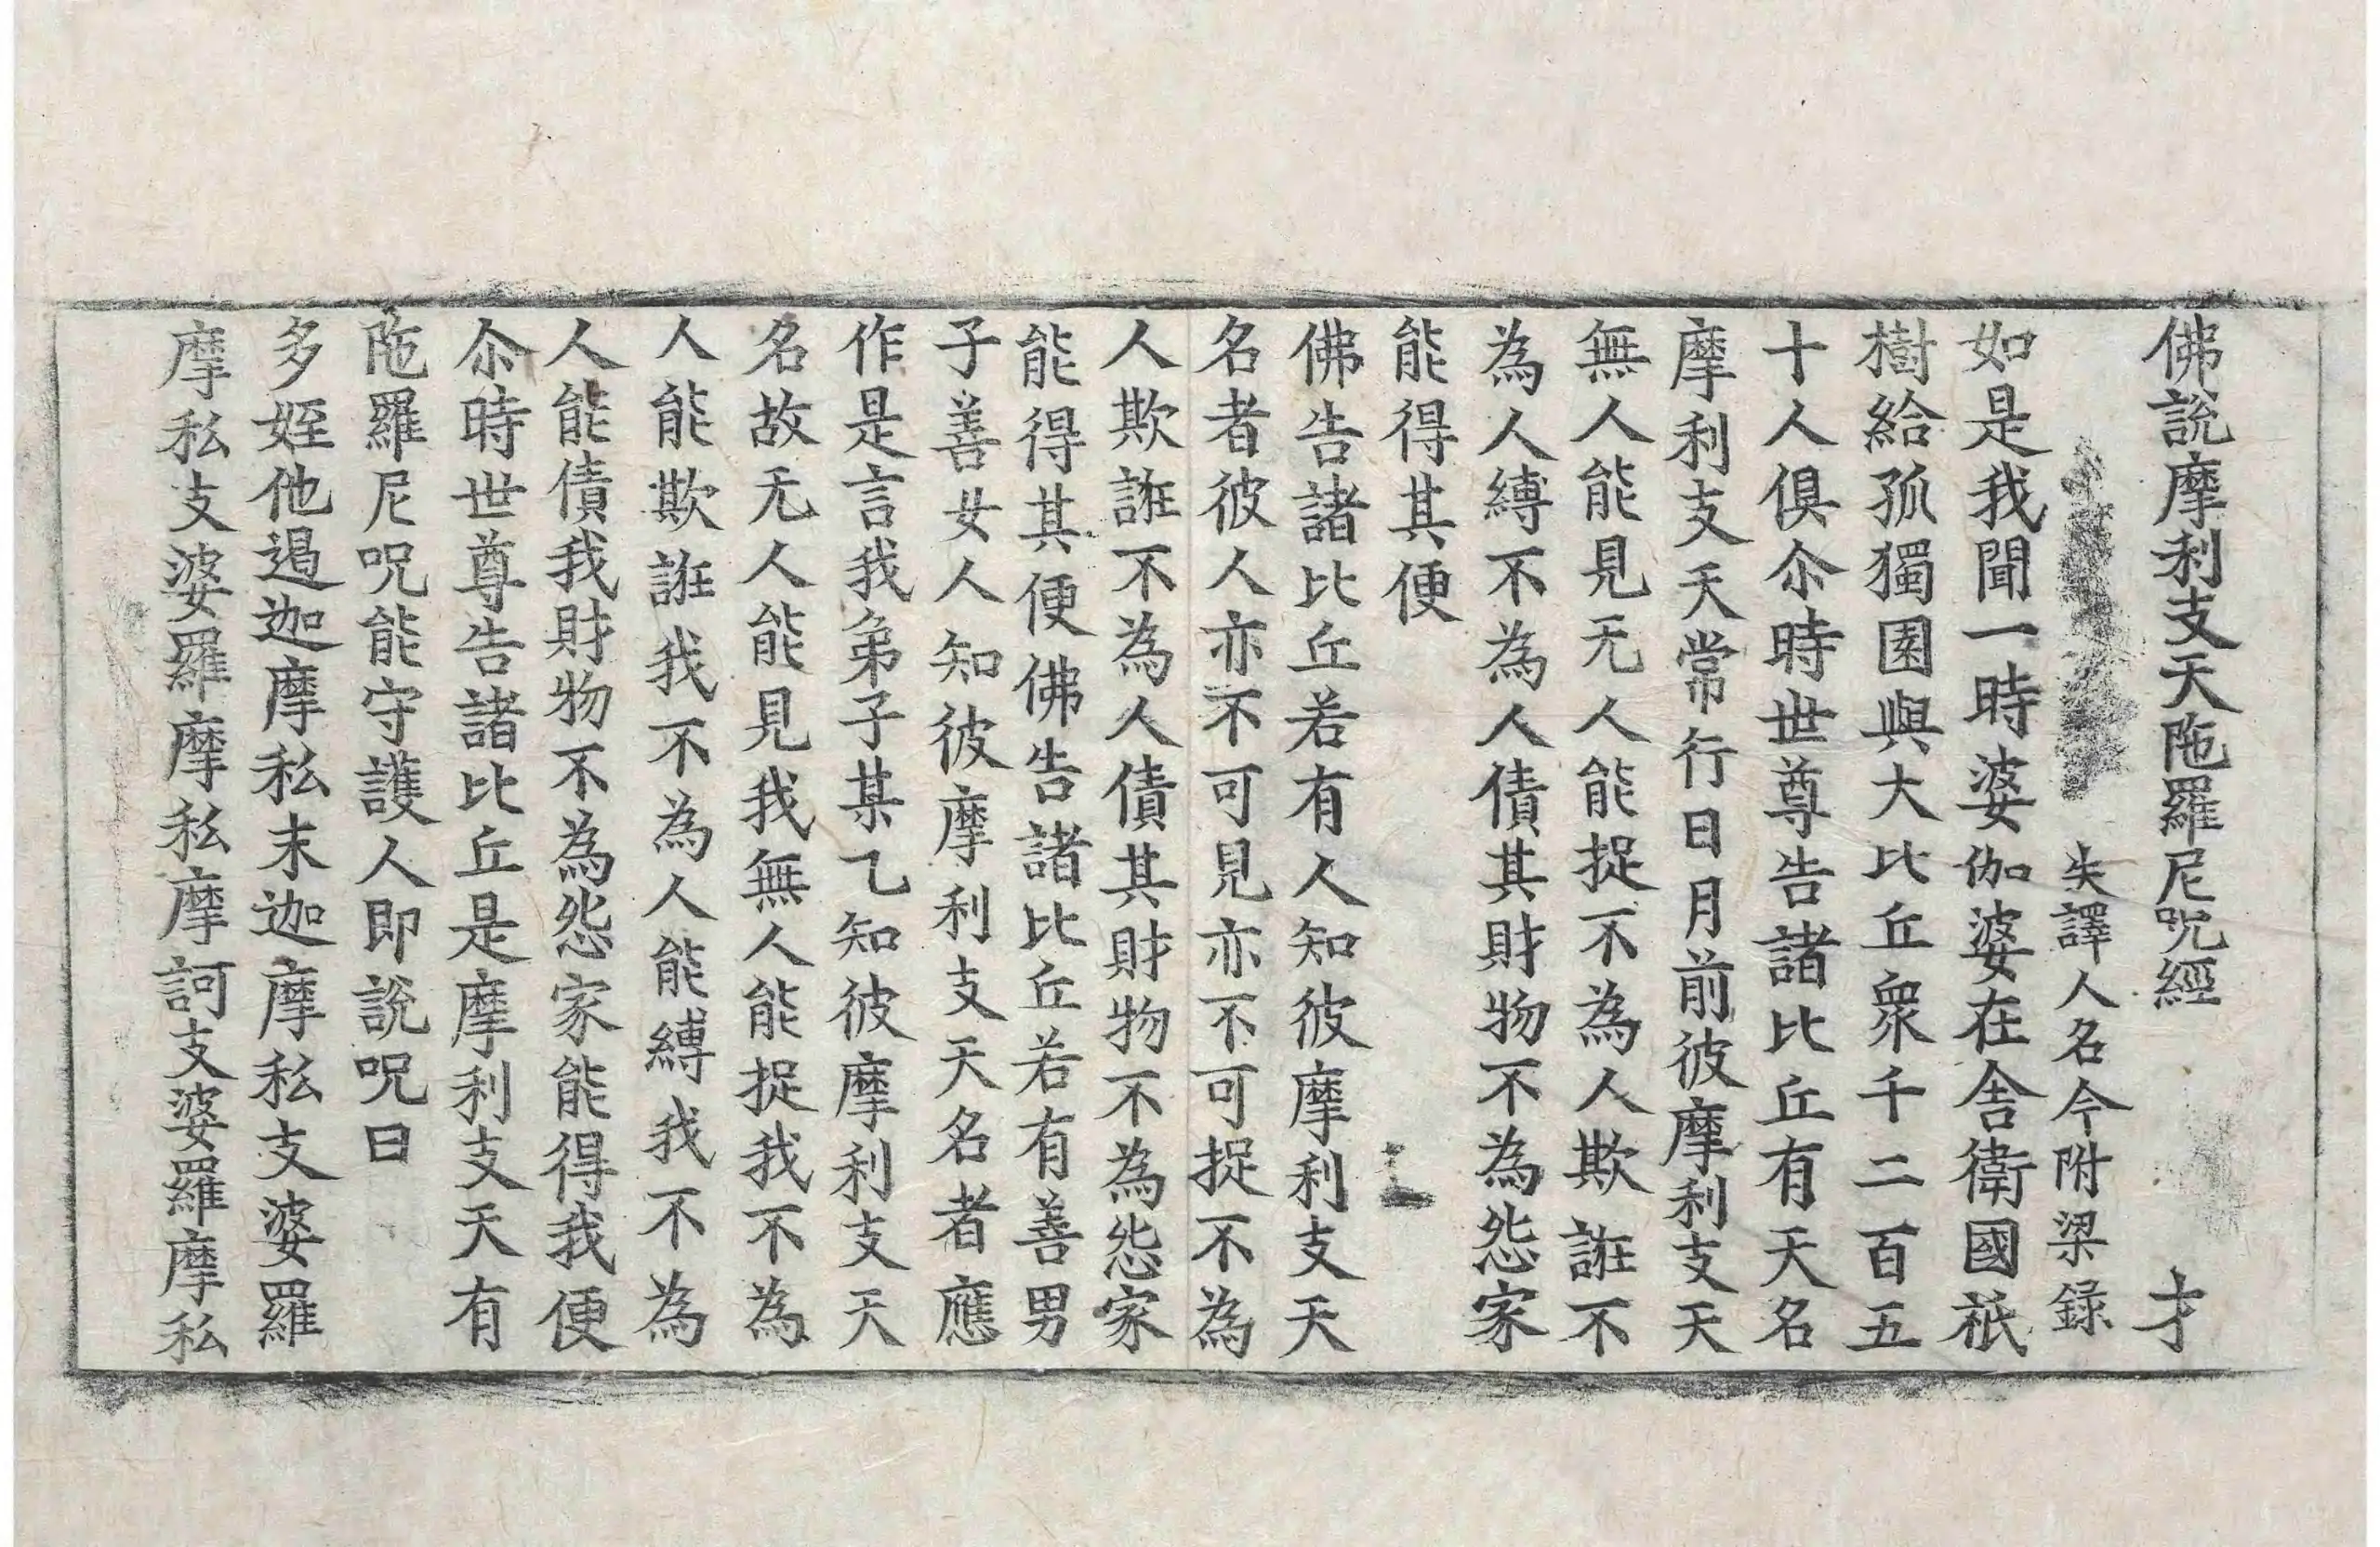 佛說摩利支天陁羅尼呪經 才
失譯人名今附梁録
如是我聞一時婆伽婆在舎衛國祇
樹給孤獨園與大比丘衆千二百五
十人俱尒時世尊告諸比丘有天名
摩利支天常行日月前彼摩利支天
無人能見无人能捉不為人欺誑不
為人縛不為人債其財物不為怨家
能得其便
佛告諸比丘若有人知彼摩利支天
名者彼人亦不可見亦不可捉不為
人欺誑不為人債其財物不為怨家
能得其便佛告諸比丘若有善男
子善女人知彼摩利支天名者應
作是言我弟子某乙知彼摩利支天
名故无人能見我無人能捉我不為
人能欺誑我不為人能縛我不為
人能債我財物不為怨家能得我便
尒時世尊告諸比丘是摩利支天有
陁羅尼呪能守護人即說呪曰
多姪他遏迦摩私末迦摩私支婆羅
摩私支婆羅摩私摩訶支婆羅摩私